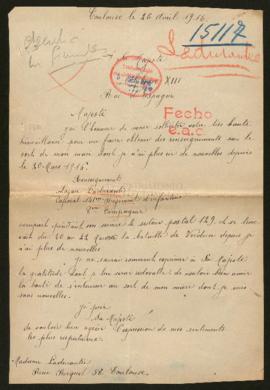 Toulouse le 26 Avril 1916.
15117
Ladurantie
à Sa Majesté
XIII
Roi d'Espagne
Fecho
e.a.c
Majesté
J'ai l'honneur de venir solliciter votre très haute
bienveillance pour me faire obtenir des renseignements sur le
sort de mon mari dont je n'ai plus de nouvelles depuis
le 20 Mars 1916.
Renseignements
Caporal régiment d'infanterie
8me Compagnie
secteur postal 129, il se trou
vait du 20 au 22 à la bataille de Verdun depuis je
n'ai plus de nouvelles
Je ne saurai comment exprimer à Sa Majesté
la gratitude dont je lui serai redevable de vouloir bien avoir
la bonté de s'intéresser au sort de mon mari dont je suis
sans nouvelles.
Je prie
Sa Majesté
de vouloir bien agréer l'expression de mes sentiments
les plus respectueux
Madame Ladurantie
Toulouse